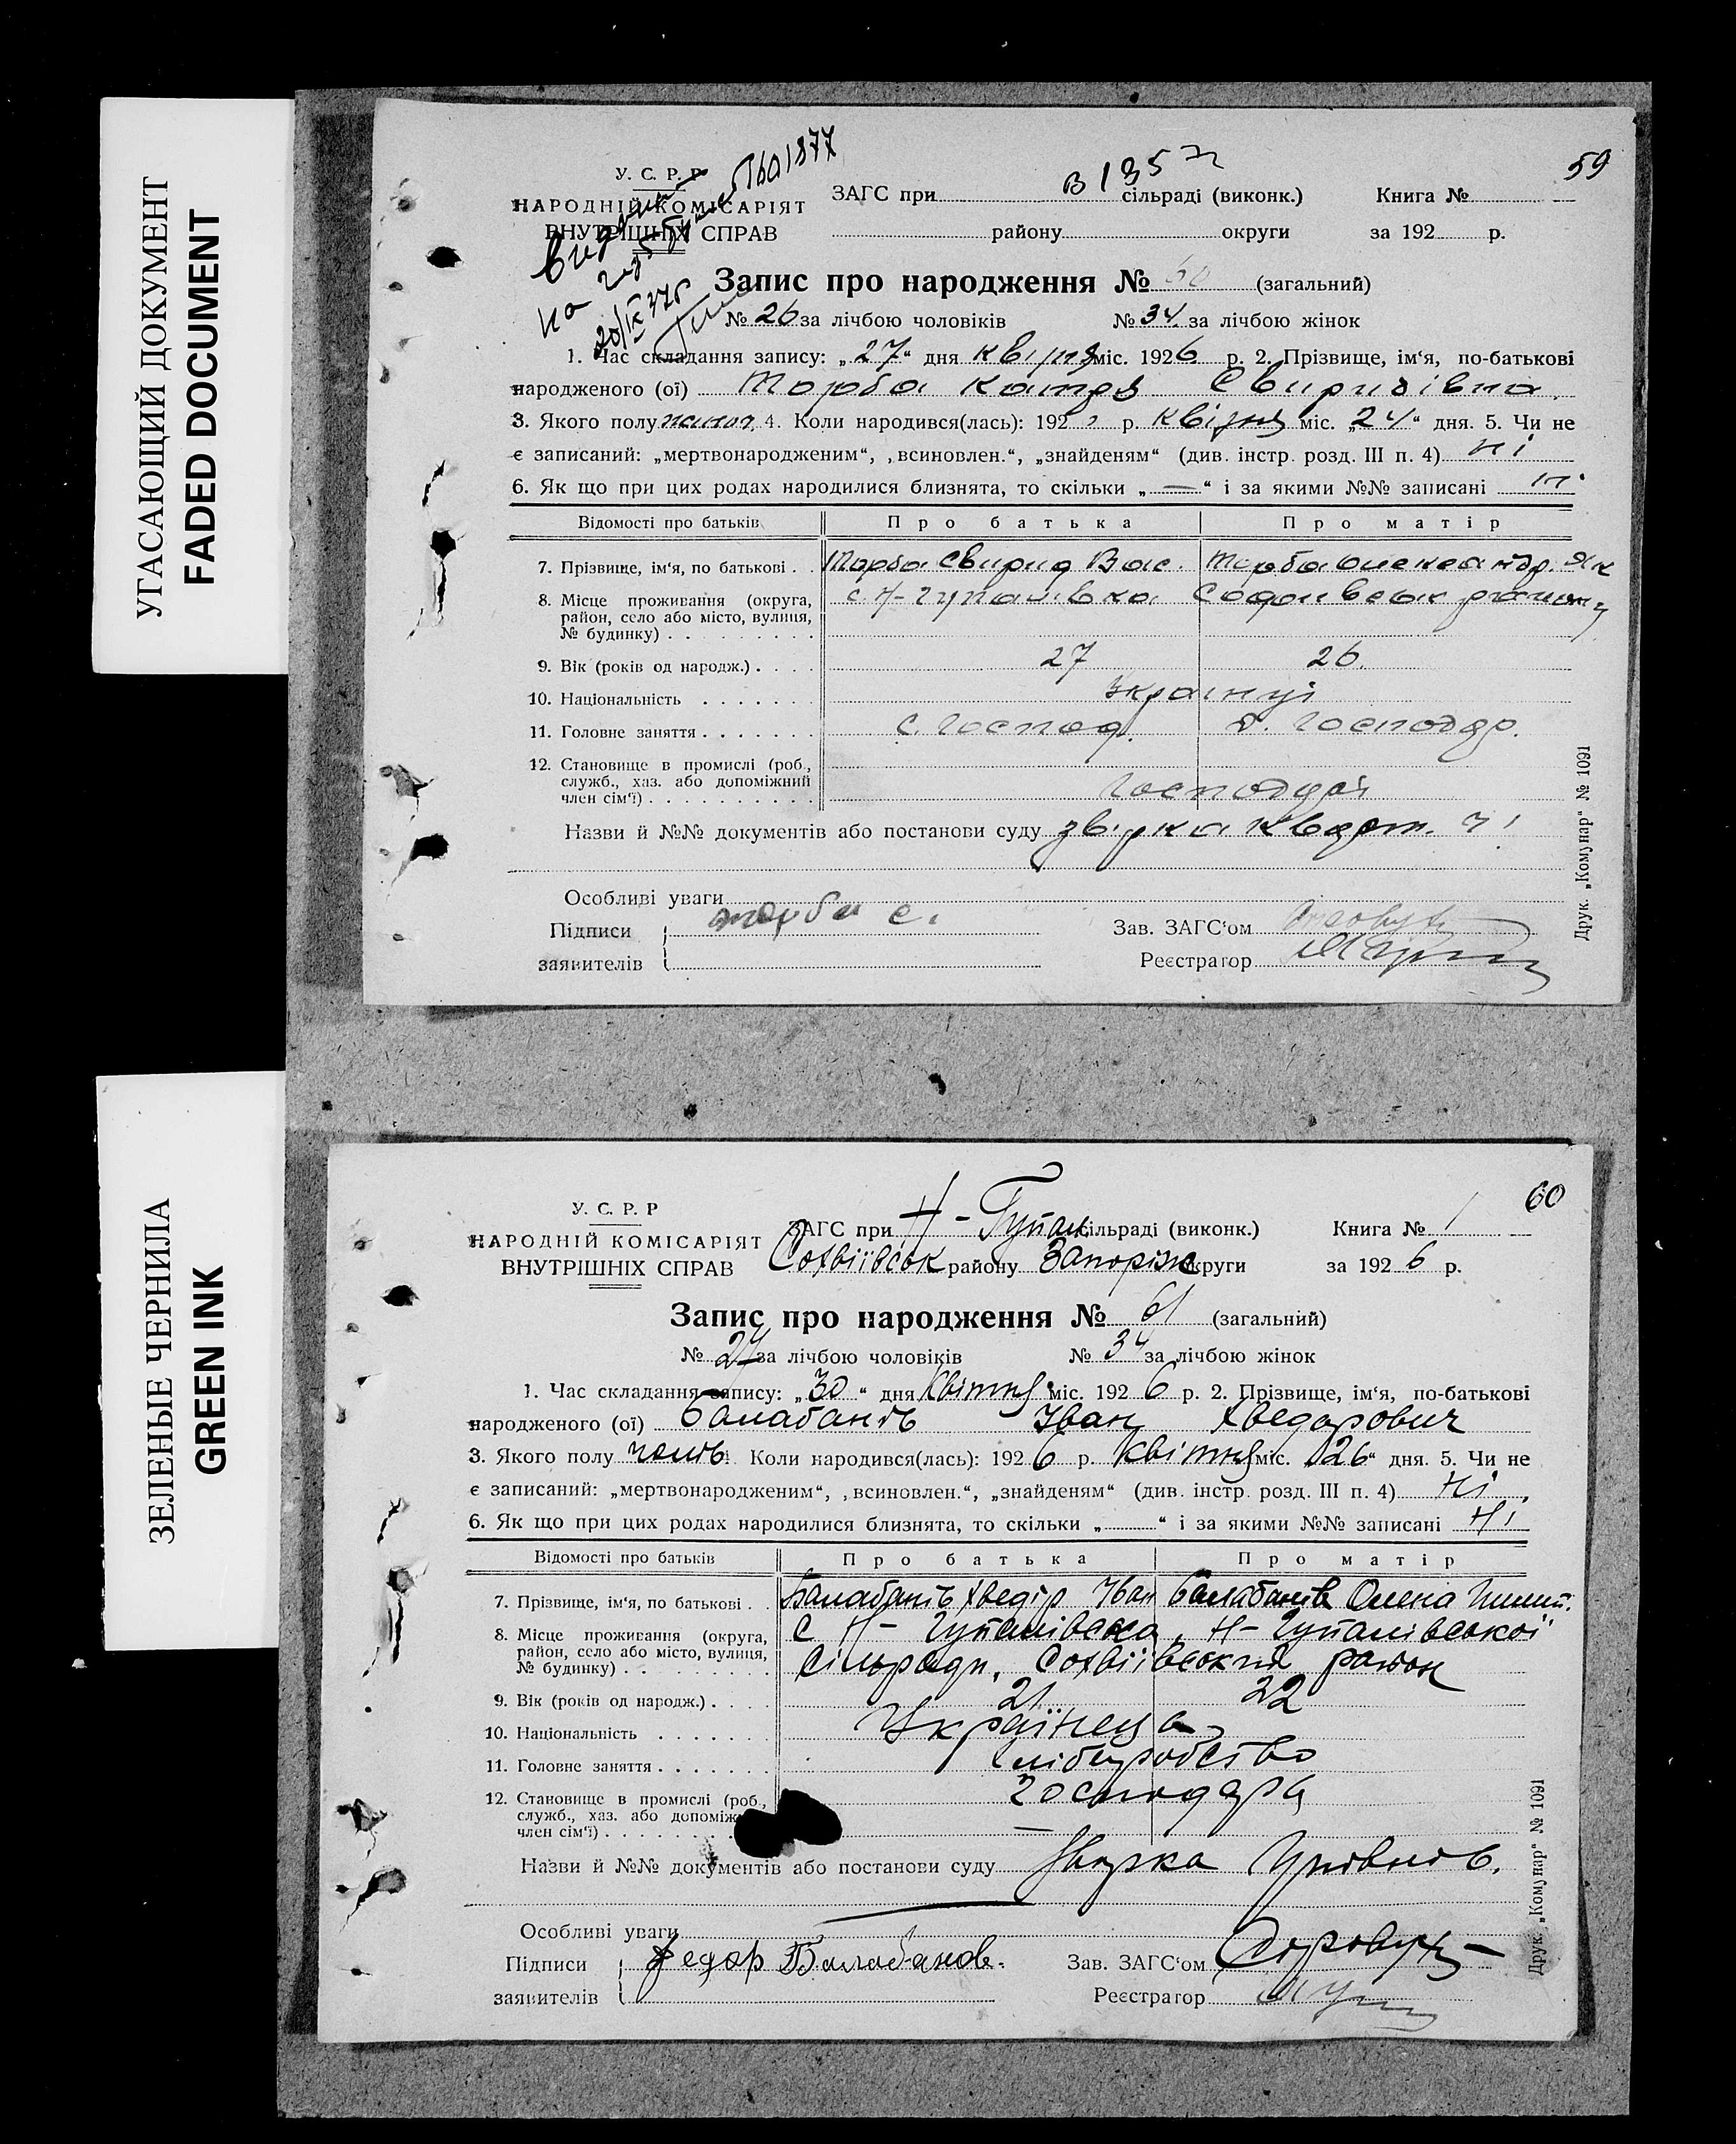 УГАСАЮЩИЙ ДОКУМЕНТ
FADED DOCUMENT
59
У. С. Р. Р
НАРОДНІЙ КОМІСАРІЯТ
ВНУТРІШНІХ СПРАВ
ЗАГС при сільраді (виконк.) Книга №
району округи за 192 р.
Запис про народження № 60 (загальний)
№ 26 за лічбою чоловіків № 34 за лічбою жінок
1. Час складання запису: „27“ дня квітня міс. 1926 р. 2. Прізвище, ім‘я, по-батькові
народженого (ої) Торба Катря Свиридівна
3. Якого полу жіноч. 4. Коли народився(лась): 192 р. квітня міс. „24“ дня. 5. Чи не
є записаний: „мертвонародженим“, „всиновлен.“, „знайденям“ (див. інстр. розд. III п. 4) ні
6. Як що при цих родах народилися близнята, то скільки „—“ і за якими №№ записані ні
Відомості про батьків Про батька Про матір
7. Прізвище, ім‘я, по батькові . . Торба Свирид Вас. Торба Олександр. Як
8. Місце проживання (округа, с. Н-Гупалівка Софіївськ району
район, село або місто, вулиця,
№ будинку)
9. Вік (років од народж.) 27 26
10. Національність Українці
11. Головне заняття С. господ. д. господар.
12. Становище в промислі (роб.,
служб., хаз. або допоміжний
член сім‘ї) господарі
Назви й №№ документів або постанови суду звірка
Особливі уваги
Підписи Торба С. Зав. ЗАГС‘ом
заявителів Реєстратор
Друк. „Комунар“ № 1091
ЗЕЛЕНЫЕ ЧЕРНИЛА
GREEN INK
60
У. С. Р. Р
НАРОДНІЙ КОМІСАРІЯТ
ВНУТРІШНІХ СПРАВ
ЗАГС при Н-Гупал. сільраді (виконк.) Книга № 1
Софіївськ району Запоріж округи за 1926 р.
Запис про народження № 61 (загальний)
№ 27 за лічбою чоловіків № 34 за лічбою жінок
1. Час складання запису: „30“ дня Квітня міс. 1926 р. 2. Прізвище, ім‘я, по-батькові
народженого (ої) Балабанів Іван Хведорович
3. Якого полу чолов. 4. Коли народився(лась): 1926 р. Квітня міс. „26“ дня. 5. Чи не
є записаний: „мертвонародженим“, „всиновлен.“, „знайденям“ (див. інстр. розд. III п. 4) Ні
6. Як що при цих родах народилися близнята, то скільки „ “ і за якими №№ записані Ні
Відомості про батьків Про батька Про матір
7. Прізвище, ім‘я, по батькові . . Балабанів Хведір Іван Балабанів Олена
8. Місце проживання (округа, С Н-Гупалівська, Н-Гупалівської
район, село або місто, вулиця, Сільради, Софіївский район
№ будинку)
9. Вік (років од народж.) 21 22
10. Національність Українець
11. Головне заняття хліборобство
12. Становище в промислі (роб., господарь
служб., хаз. або допоміж
член сім‘ї) —
Назви й №№ документів або постанови суду
Особливі уваги
Підписи Федор Балабанов. Зав. ЗАГС‘ом
заявителів Реєстратор
Друк. „Комунар“ № 1091